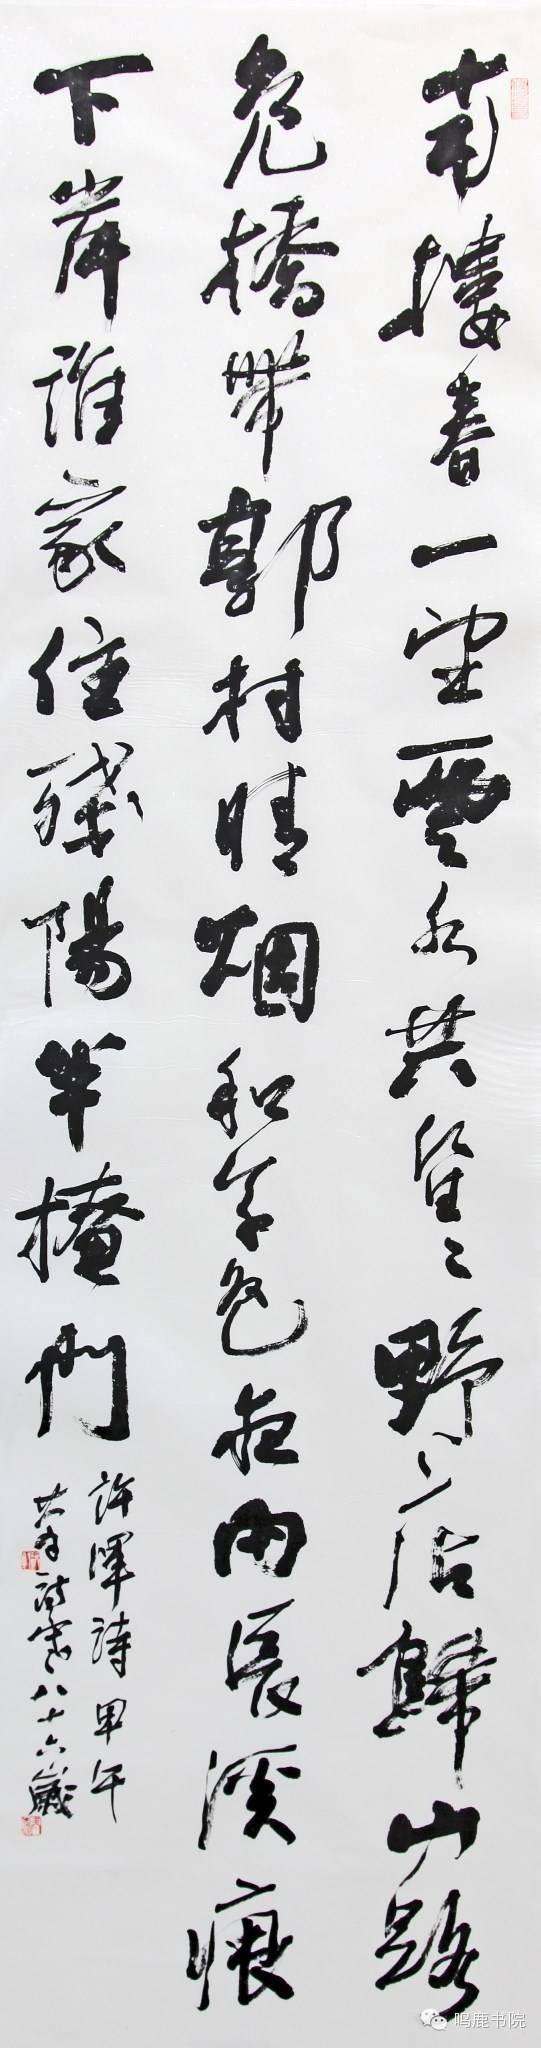 南樓春一望雲水共昏〻野店歸山路
危橋帶郭村晴烟和草色夜雨長溪痕
下岸誰家住殘陽半掩門
許渾詩甲午
八十六歲
鸣鹿书院